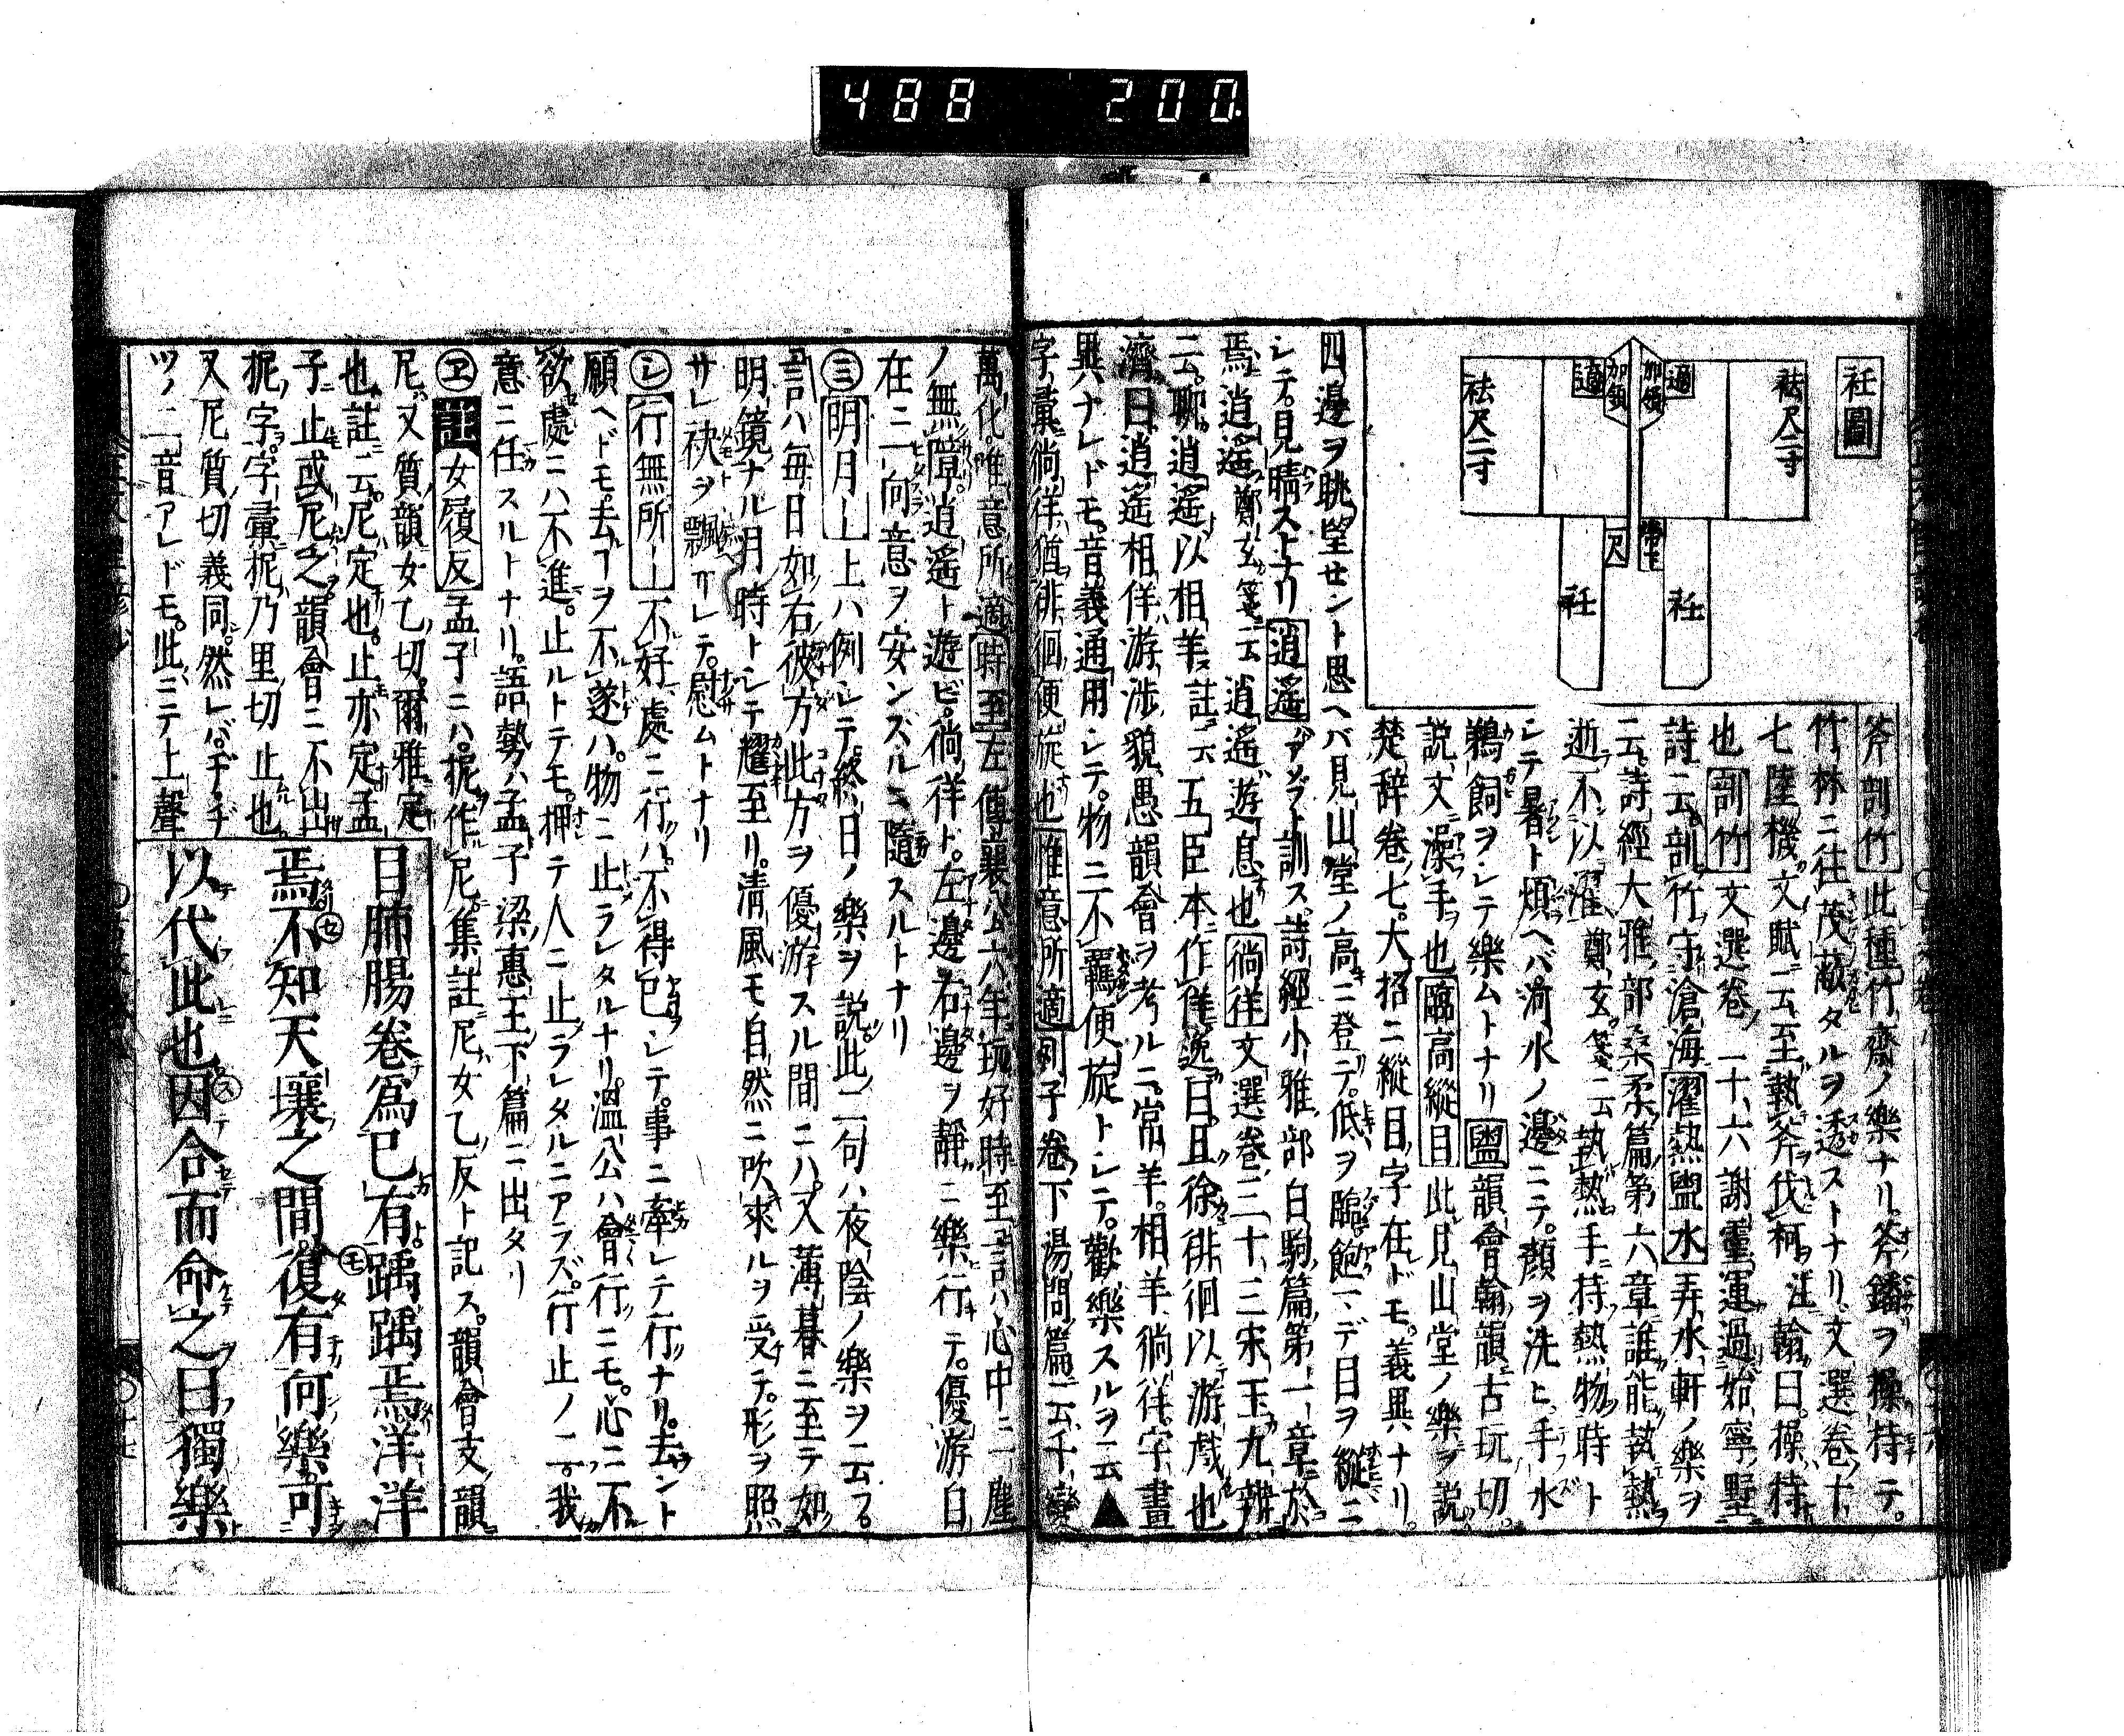 488 200
衽圖
袪尺二寸
適
加領
加領
適
袪尺二寸
衽
衽
斧剖竹此種竹齋ノ樂ナリ斧鐇ヲ操持テ。
竹林ニ往茂蔽タルヲ透ストナリ。文選卷十
七陸機文賦ニ云至執斧伐柯注翰曰。操持
也剖竹文選卷二十六謝靈運過始寧墅
詩ニ云剖竹守滄海濯熱盥水弄水軒ノ樂ヲ
云。詩經大雅部桑柔篇第六章誰能執熱
逝不以濯鄭玄箋ニ云執熱手持熱物時ト
シテ暑ト煩ヘバ渮水ノ邊ニテ。顏ヲ洗ヒ手水
鵜飼ヲシテ樂ムトナリ盥韻會翰韻古玩切。
説文澡手也臨高縱目此見山堂ノ樂ヲ説
楚辞卷七。大招ニ縱目字在ドモ。義異ナリ。
四邊ヲ眺望セント思ヘバ見山堂ノ高ニ登テ。低ヲ臨。飽マデ目ヲ縱ニ
シテ。見晴ストナリ逍遥アソブト訓ス。詩經小雅部白駒篇第一章於
焉逍遥鄭玄箋ニ云逍遥遊息也徜徉文選卷三十三宋玉九辨
ニ云。聊逍遥以相羊註ニ云五臣本作徉逸曰。且徐徘徊以游戲也
濟曰。逍遥相徉游渉貌愚韻會ヲ考ルニ。常羊。相羊徜徉。字畫
異ナレドモ。音義通用シテ。物ニ不羈便旋トシテ。歡樂スルヲ云▲
字彙徜徉猶徘徊便旋也惟意所適列子卷下湯問篇ニ云千變
萬化。唯意所適時至左傳襄公六年玩好時至言ハ心中ニ塵
ノ無障逍遥ト遊ビ。徜徉ト。左邊右邊ヲ靜ニ樂行テ。優游自
在ニ一向意ヲ安ンズルニ隨スルトナリ
㋯明月ー上ハ例シテ終日ノ樂ヲ説此二句ハ夜陰ノ樂ヲ云フ。
言ハ毎日如右彼方此方ヲ優游スル間ニハ。又薄暮ニ至テ如
明鏡ナル月時トシテ耀至リ。清風モ自然ニ吹來ルヲ受テ。形ヲ照
サレ袂ヲ飄ガレテ。慰ムトナリ
㋹行無所ー不好處ニ行ハ。不得已シテ。事ニ牽レテ行ナリ。去ント
願ヘドモ。去ヿヲ不遂ハ。物ニ止ラレタルナリ。溫公ハ會行ニモ。心ニ不
欲處ニハ不進。止ルトテモ。押テ人ニ止ラレタルニアラズ。行止ノ二。我
意ニ任スルトナリ。語勢ハ孟子梁惠王下篇ニ出タリ
㋾註女履反孟子ニハ。柅作尼集註尼女乙反ト記ス。韻會支韻
尼又質韻女乙切。爾雅定
也註ニ云。尼定也。止亦定孟
子ニ止或尼之韻會ニ不出
柅字。字彙柅乃里切止也
又尼質切義同。然レバ。ヂ・ヂ
ツノ二音アレドモ。此ニテ上聲
目肺腸卷爲己有踽踽焉洋洋
焉不知天壤之間復有何樂可
以代此也因合而命之曰獨樂